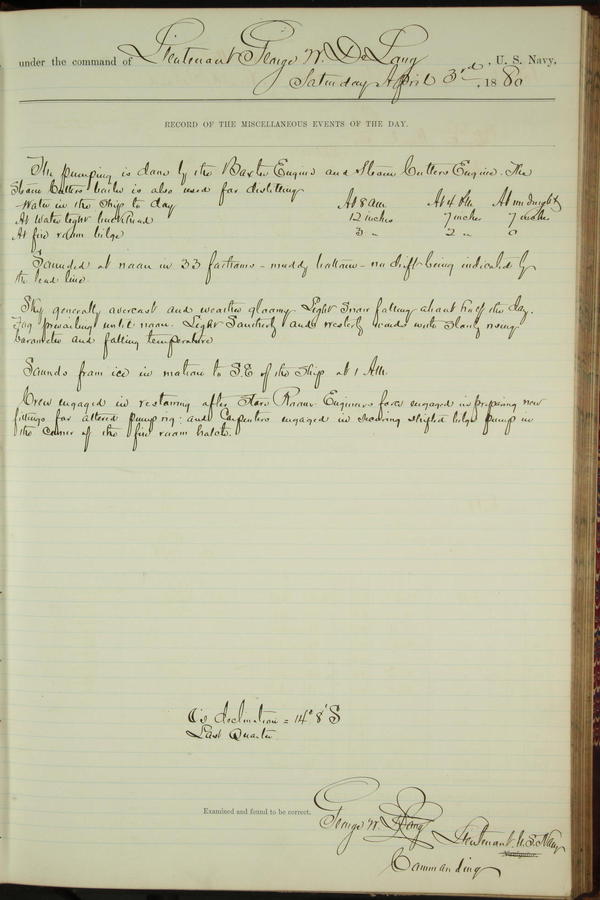 under the command of Lieutenant George W. De Long, U. S. Navy,
Saturday April 3rd, 1880
RECORD OF THE MISCELLANEOUS EVENTS OF THE DAY.
The pumping is done by the Baxter Engine and Steam Cutters Engine. The
Steam Cutters boiler is also used for distilling
Water in the Ship to day At 8 am At 4 PM At midnight
At water tight bulkhead 12 inches 7 inches 7 inches
At fire room bilge 3 " 2 " 0
Sounded at noon in 33 fathoms - muddy bottom - no drift being indicated by
the lead line.
Sky generally overcast and weather gloomy. Light Snow falling about half the day.
Fog prevailing until noon. Light Southerly and westerly winds with slowly rising
barometer and falling temperature
Sounds from ice in motion to S.E of the Ship at 1 AM.
Crew engaged in restowing after Store Room. Engineers force engaged in preparing new
fittings for altered pumping: and Carpenters engaged in securing shifted bilge pump in
the corner of the fire room hatch.
☾'s declination = 14° 8' S
Last Quarter
Examined and found to be correct.
George W. De Long Lieutenant U.S. Navy
Navigator.
Commanding